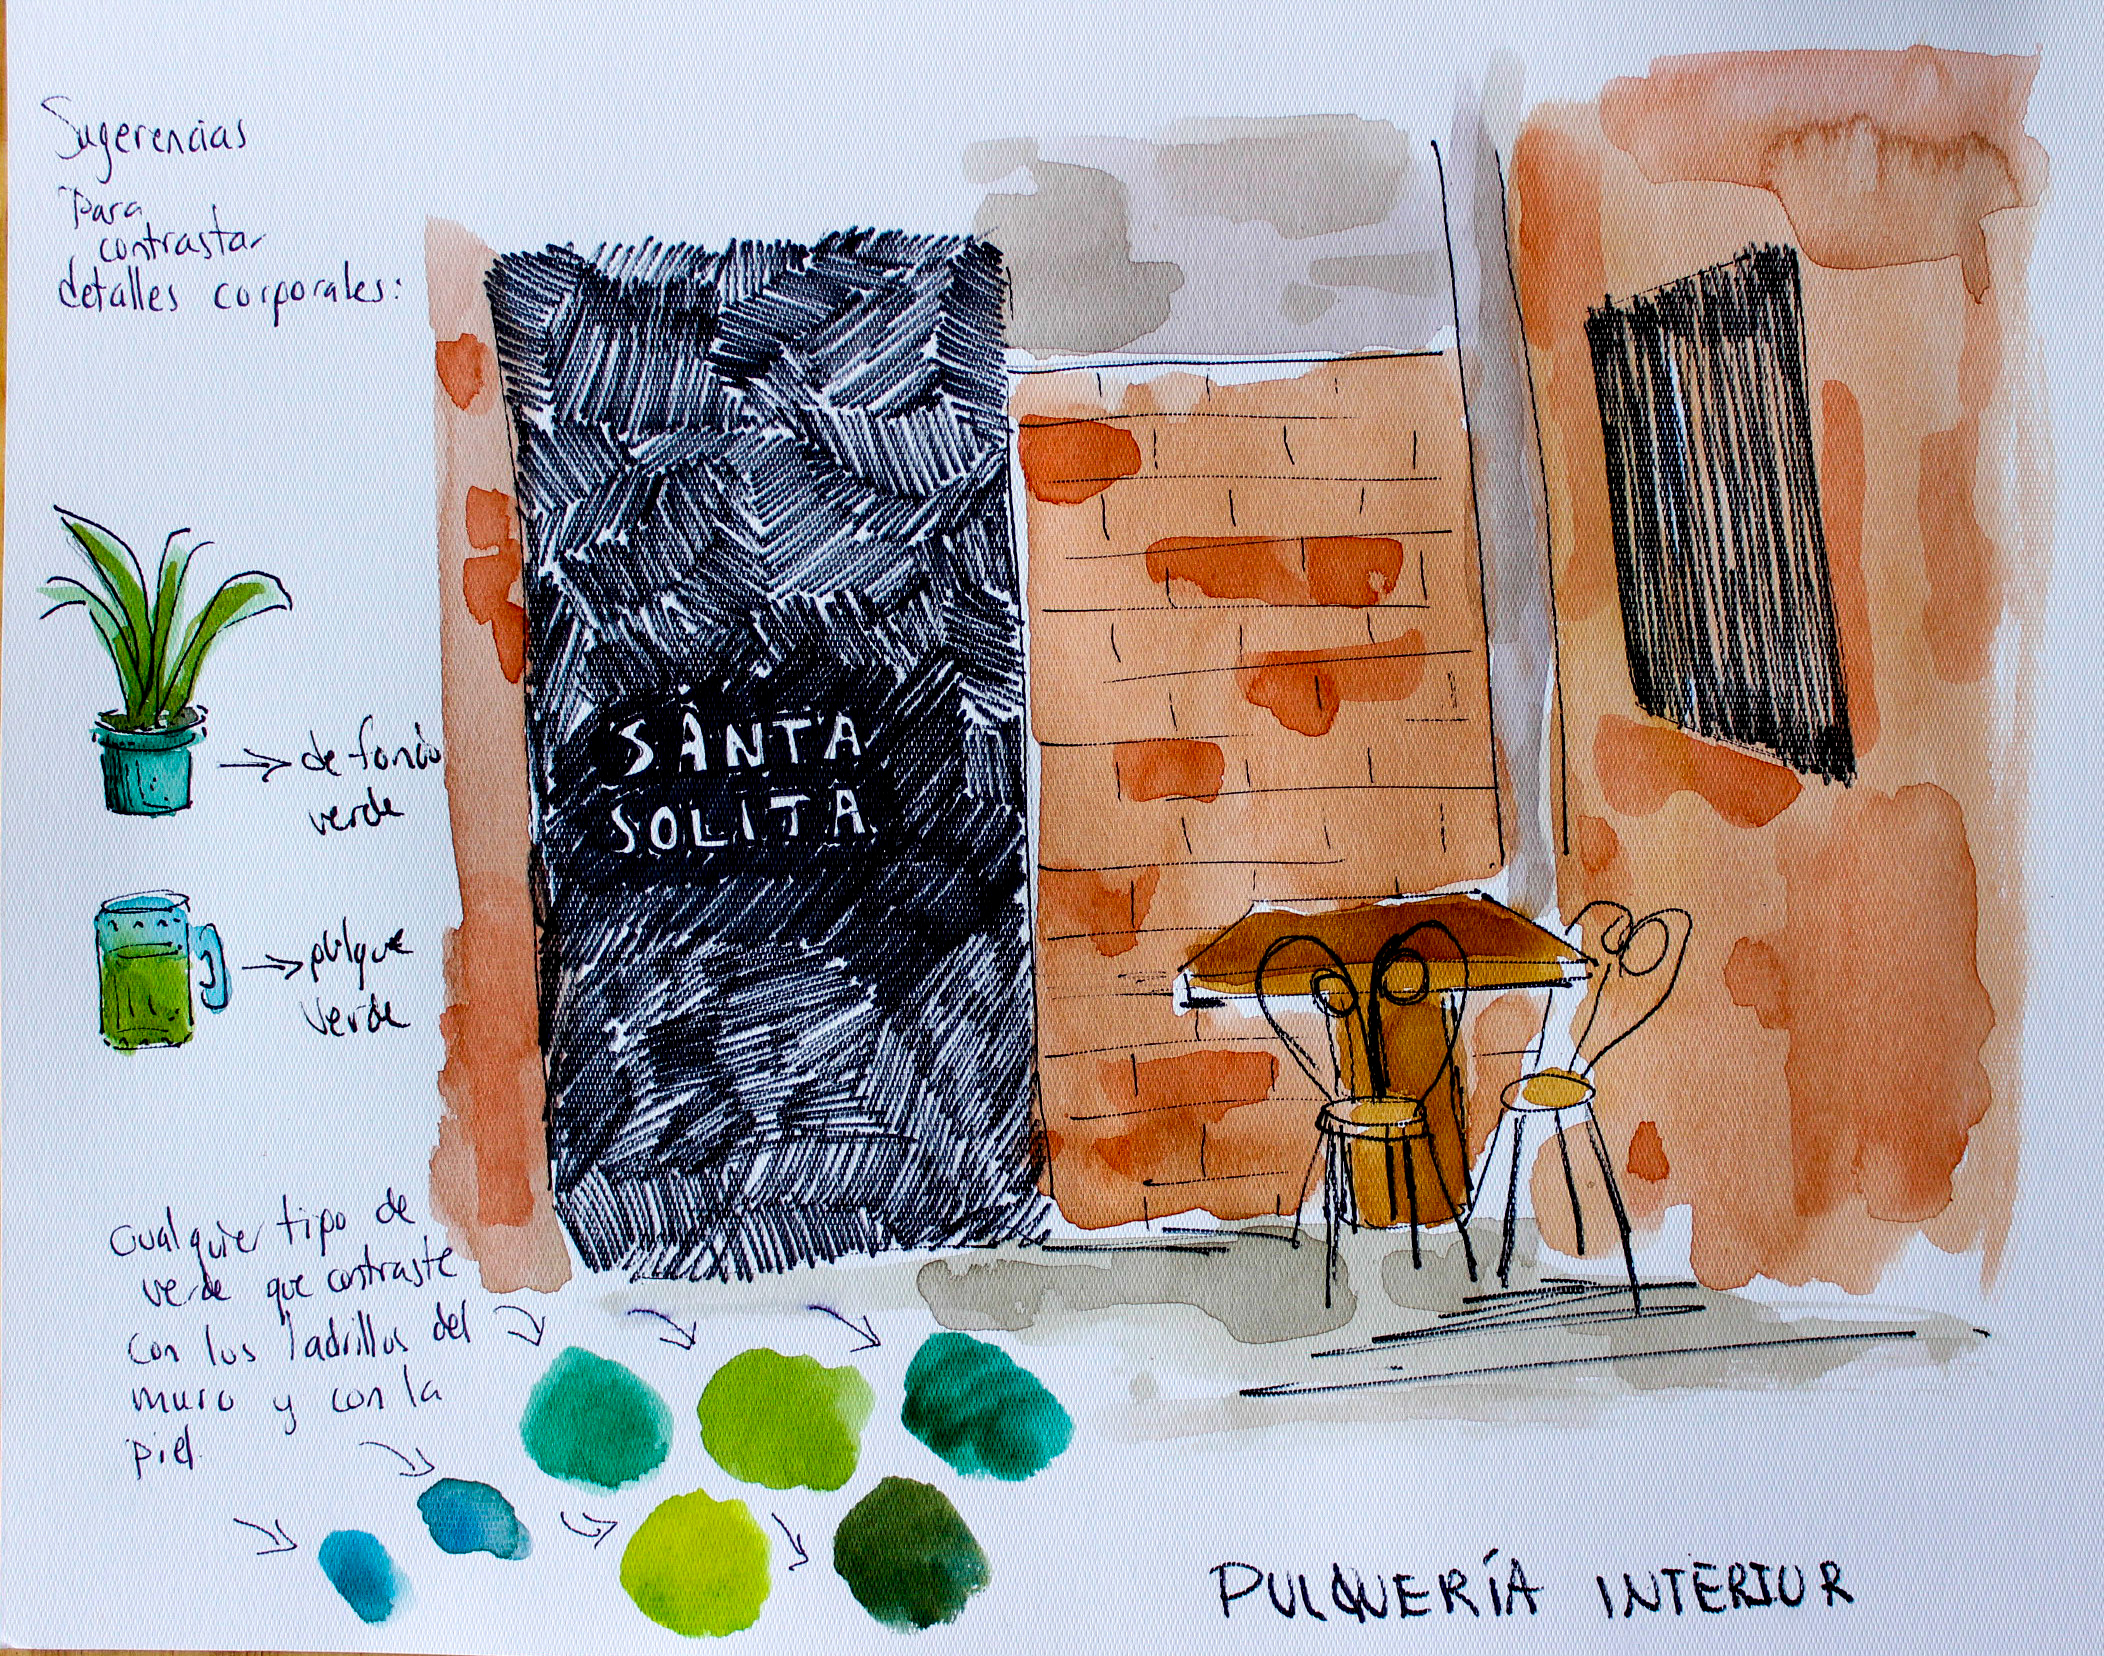 Sugerencias
para
contrastar
detalles corporales:
de fondo
verde
pulque
verde
SANTA
SOLITA
Cualquier tipo de
verde que contraste
con los ladrillos del
muro y con la
piel.
PULQUERÍA INTERIOR